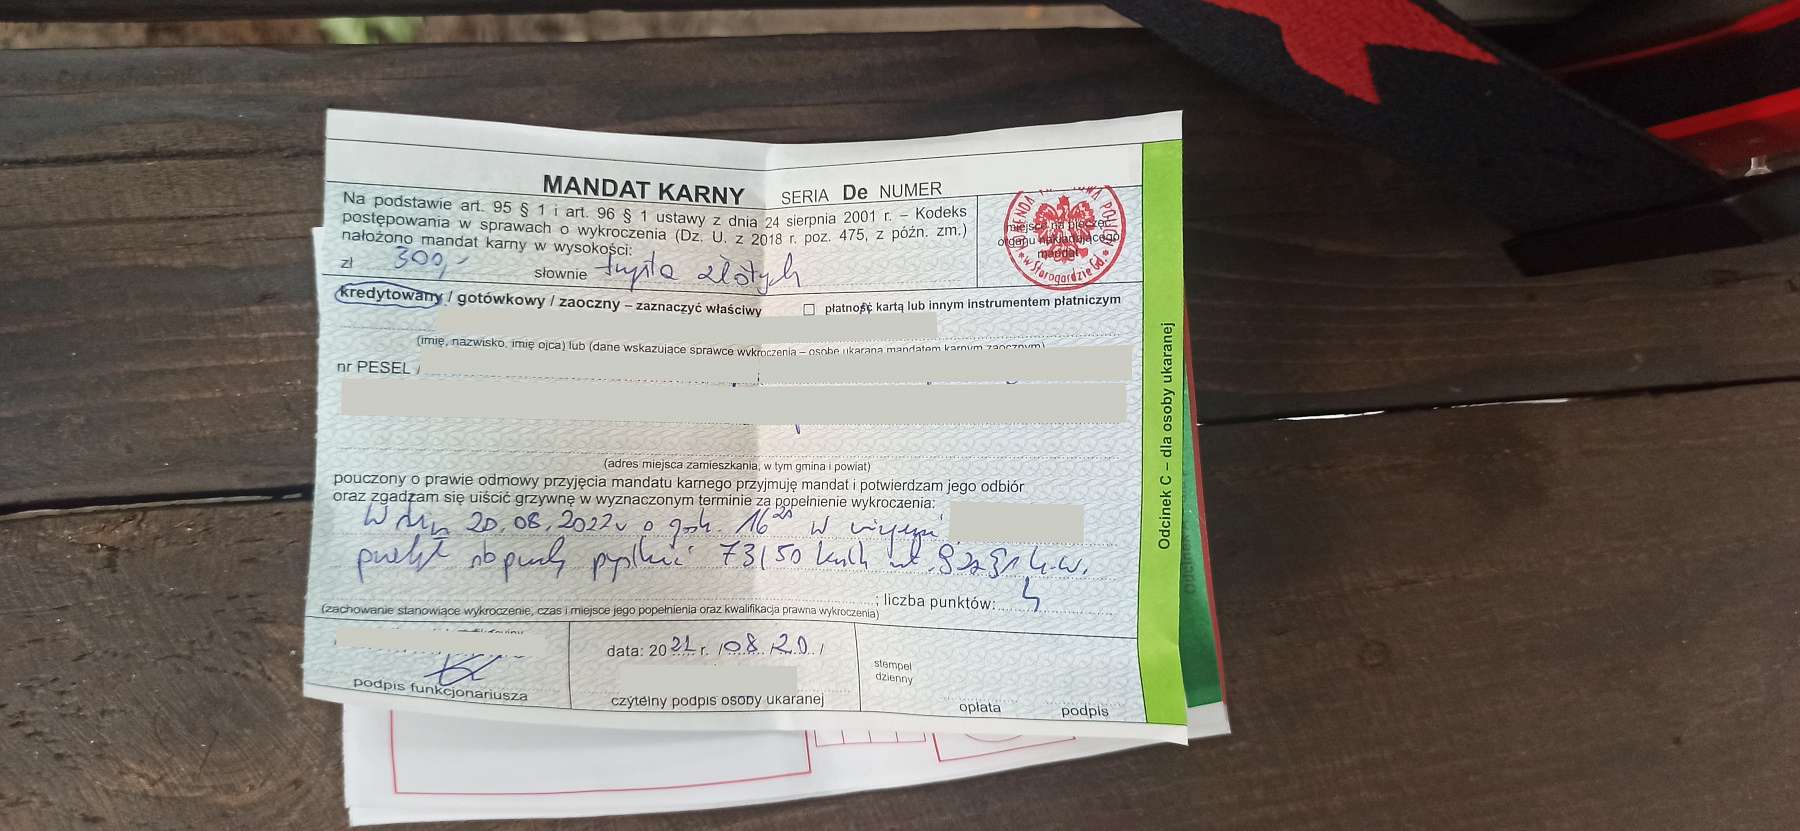 MANDAT KARNY SERIA De NUMER
Na podstawie art. 95 § 1 i art. 96 § 1 ustawy z dnia 24 sierpnia 2001 r. – Kodeks
postępowania w sprawach o wykroczenia (Dz. U. z 2018 r. poz. 475, z późn. zm.)
nałożono mandat karny w wysokości:
zł 300,- słownie trzysta złotych
miejsce na pieczęć
organu nakładającego
mandat
POLICJI
w Starogardzie Gd.
kredytowany / gotówkowy / zaoczny – zaznaczyć właściwy
płatność kartą lub innym instrumentem płatniczym
(imię, nazwisko, imię ojca) lub (dane wskazujące sprawcę wykroczenia – osobę ukaraną mandatem karnym zaocznym)
nr PESEL
(adres miejsca zamieszkania, w tym gmina i powiat)
pouczony o prawie odmowy przyjęcia mandatu karnego przyjmuję mandat i potwierdzam jego odbiór
oraz zgadzam się uiścić grzywnę w wyznaczonym terminie za popełnienie wykroczenia:
W dn. 20.08.2022r o godz. 16 w
73/50 km/h
; liczba punktów: 4
(zachowanie stanowiące wykroczenie, czas i miejsce jego popełnienia oraz kwalifikacja prawna wykroczenia)
podpis funkcjonariusza
data: 2021 r. /08./20./
czytelny podpis osoby ukaranej
stempel
dzienny
opłata podpis
Odcinek C – dla osoby ukaranej